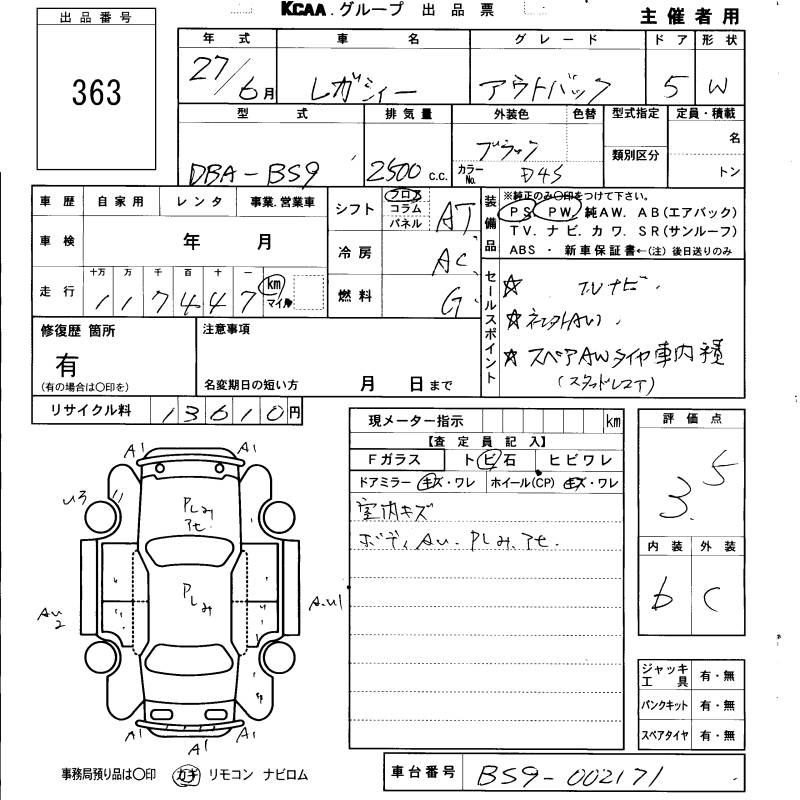 KCAA.グループ 出品票
主催者用
出品番号
363
年式 車名 グレード ドア 形状
27/6月 レガシィー アウトバック 5 W
型式 排気量 外装色 色替 型式指定 定員・積載
DBA-BS9 2500 c.c. ブラック カラーNo. D4S 類別区分 名 トン
車歴 自家用 レンタ 事業.営業車
車検 年 月
走行 十万 万 千 百 十 一
117447 km マイル
シフト フロア コラム パネル AT
冷房 AC
燃料 G
装備品 ※純正のみ〇印をつけて下さい。
PS. PW. 純AW. AB(エアバック)
TV. ナビ. カワ. SR(サンルーフ)
ABS ・ 新車保証書←(注) 後日送りのみ
セールスポイント
☆ TVナビ.
☆
☆ スペアAWタイヤ車内積
修復歴 箇所
有
(有の場合は〇印を)
注意事項
名変期日の短い方 月 日まで
リサイクル料 13610円
現メーター指示 km
【査定員記入】
Fガラス トビ石 ヒビワレ
ドアミラー キズ・ワレ ホイール(CP) キズ・ワレ
室内キズ
ボディAu. Pしみ. Pt.
評価点
3.5
内装 外装
b C
A1 A1
いろ
Pしみ
Pt
Pしみ
Au2
Au1
A1 A1
A1
ジャッキ工具 有・無
パンクキット 有・無
スペアタイヤ 有・無
事務局預り品は〇印 カギ リモコン ナビロム
車台番号 BS9-002171